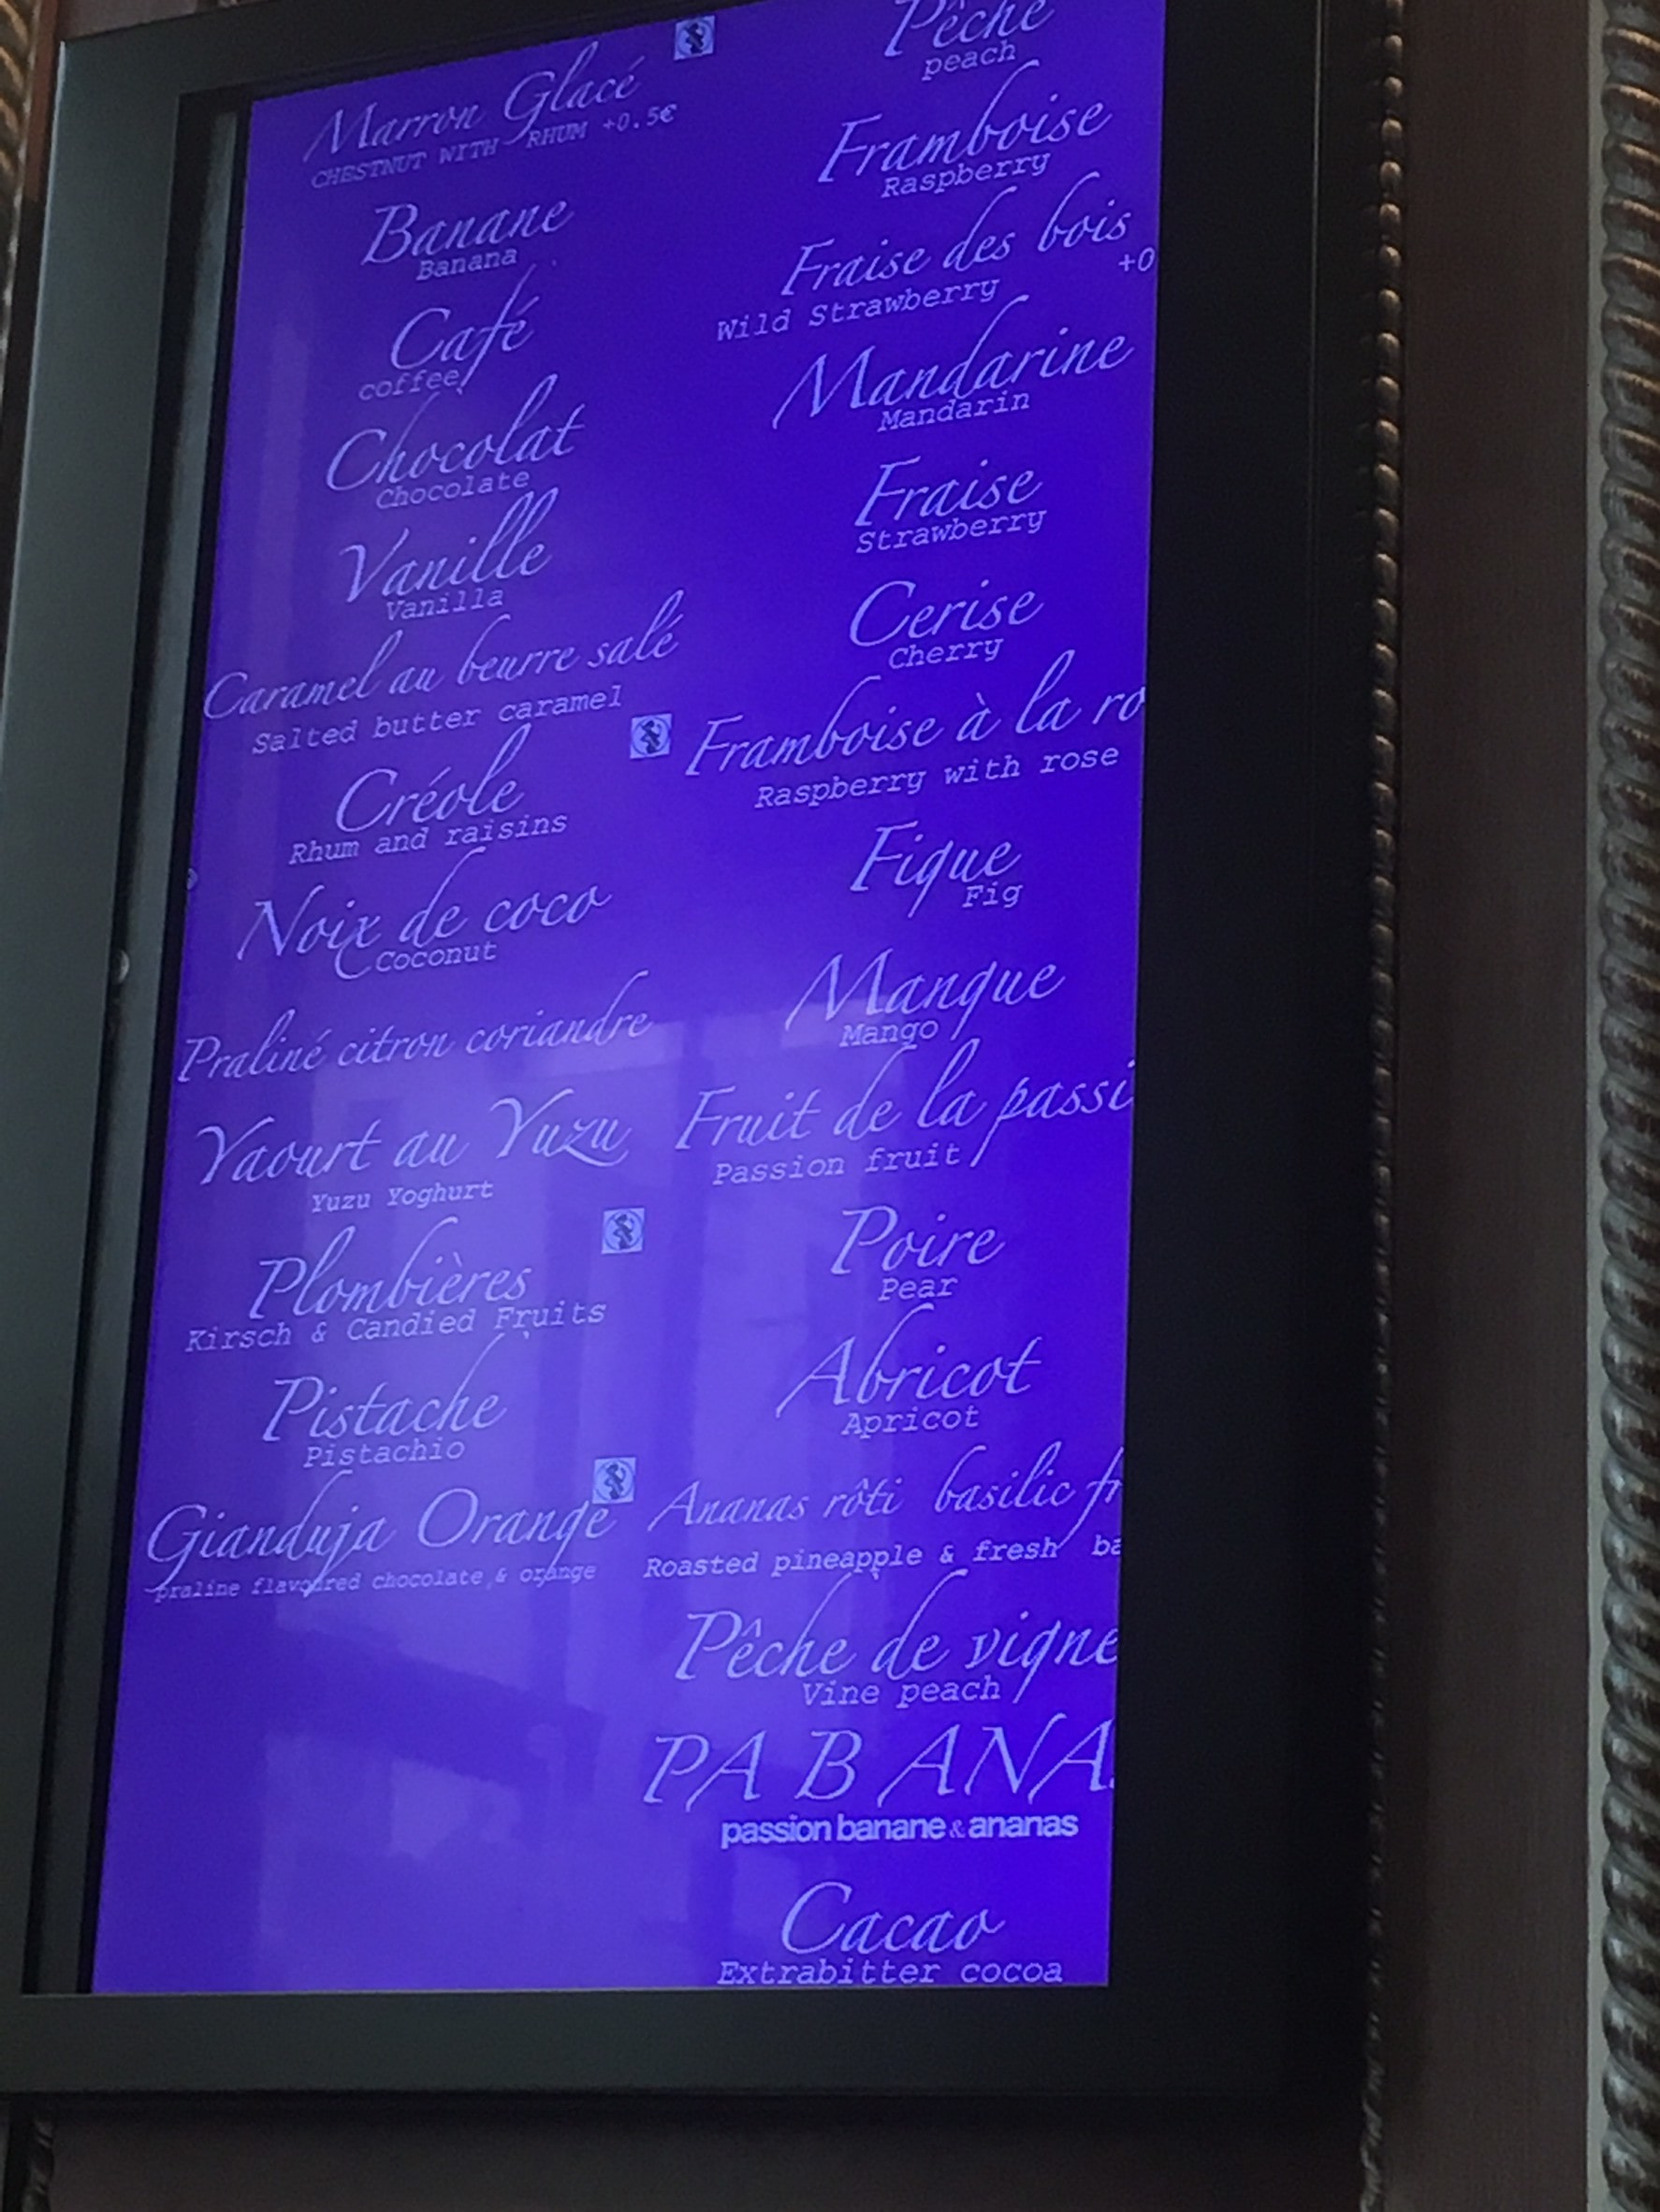 Marron Glacé
CHESTNUT WITH RHUM +0.5€
Banane
Banana
Café
coffee
Chocolat
Chocolate
Vanille
Vanilla
Caramel au beurre salé
Salted butter caramel
Créole
Rhum and raisins
Noix de coco
Coconut
Praliné citron coriandre
Yaourt au Yuzu
Yuzu Yoghurt
Plombières
Kirsch & Candied Fruits
Pistache
Pistachio
Gianduja Orange
praline flavoured chocolate & orange
Pêche
peach
Framboise
Raspberry
Fraise des bois
+0
Wild Strawberry
Mandarine
Mandarin
Fraise
Strawberry
Cerise
Cherry
Framboise à la ro
Raspberry with rose
Figue
Fig
Mangue
Mango
Fruit de la passi
Passion fruit
Poire
Pear
Abricot
Apricot
Ananas rôti basilic fr
Roasted pineapple & fresh ba
Pêche de vigne
Vine peach
PA B ANA
passion banane & ananas
Cacao
Extrabitter cocoa